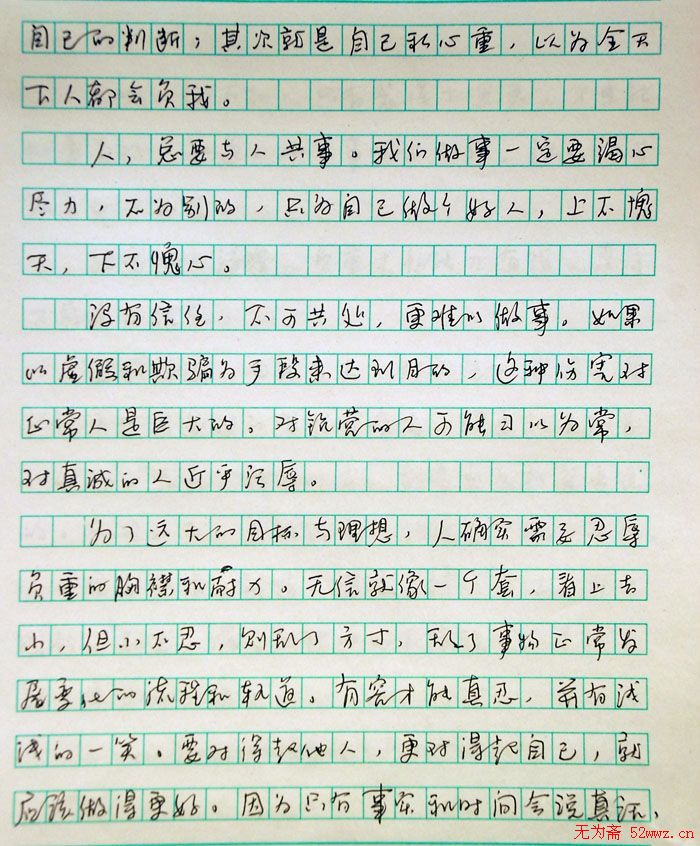 自己的判断；其次就是自己私心重，以为全天
下人都会负我。
人，总要与人共事。我们做事一定要竭心
尽力，不为别的，只为自己做个好人，上不愧
天，下不愧心。
没有信任，不可共处，更难以做事。如果
以虚假和欺骗为手段来达到目的，这种伤害对
正常人是巨大的。对钻营的人可能习以为常，
对真诚的人近乎污辱。
为了远大的目标与理想，人确实需要忍辱
负重的胸襟和耐力。无信就像一个套，看上去
小，但小不忍，则乱了方寸，乱了事物正常发
展变化的流程和轨道。有容才能真忍，并有浅
浅的一笑。要对得起他人，更对得起自己，就
应该做得更好。因为只有事实和时间会说真话，
无为斋 52wwz.cn